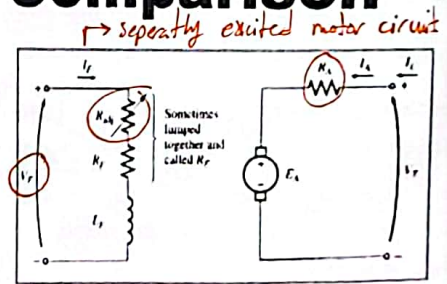 comparison
→ seperatly excited motor circuit
I_F
R_A
I_A
I_L
+
+
R_adj
Sometimes
lumped
together and
called R_F
V_F
R_F
E_A
V_T
L_F
-
-